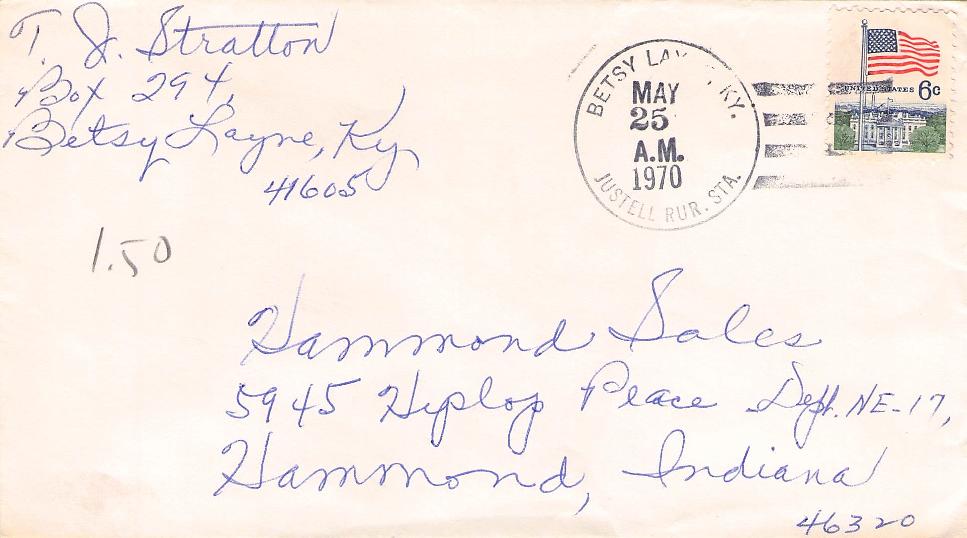 T. J. Stratton
Box 294,
Betsy Layne, Ky.
41605
1.50
BETSY LAY KY.
MAY
25
A.M.
1970
JUSTELL RUR. STA.
UNITED STATES 6c
Hammond Sales
5945 Hiplop Peace Dept. NE-17,
Hammond, Indiana
46320